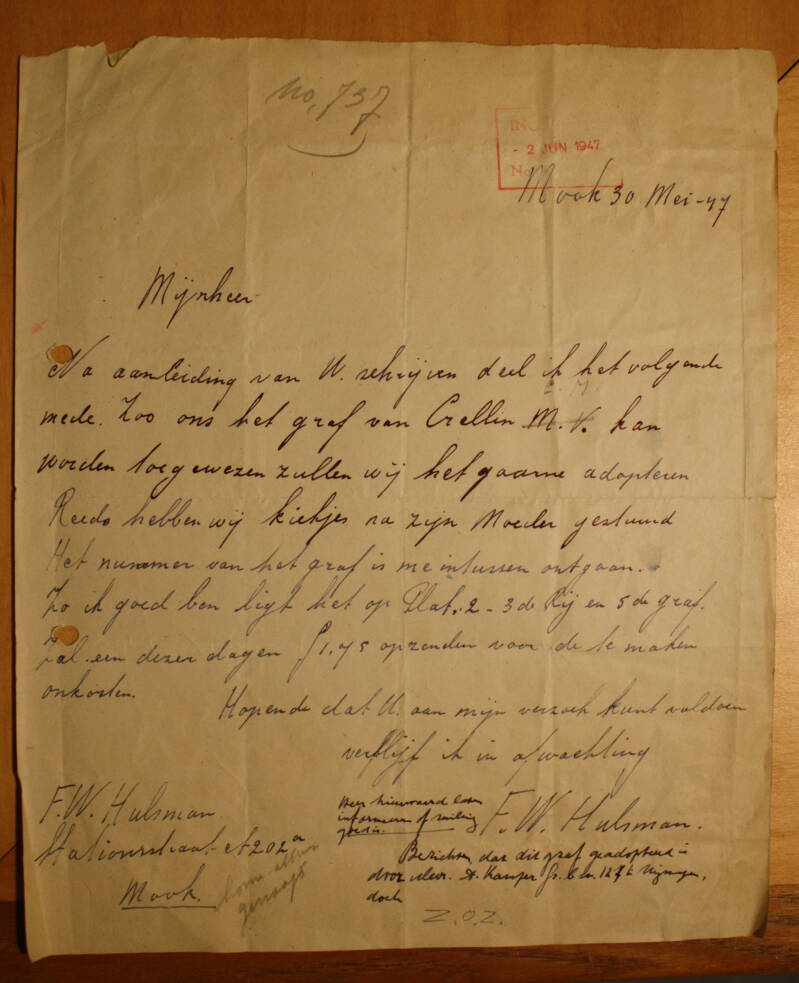 No, 737
- 2 JUN 1947
No
Mook 30 Mei - 47
Mijnheer
Na aanleiding van U. schrijven deel ik het volgende
C. M
mede. Zoo ons het graf van Crellin M. V. kan
worden toegewezen zullen wij het gaarne adopteren
Reeds hebben wij kiekjes na zijn Moeder gestuurd
Het nummer van het graf is me intussen ontgaan.
Zo ik goed ben ligt het op Plat. 2 - 3 de Rij en 5 de graf.
Zal een dezer dagen f 1,75 opzenden voor de te maken
onkosten.
Hopende dat U. aan mijn verzoek kunt voldoen
verblijf ik in afwachting
F. W. Hulsman.
F. W. Hulsman
Stationstraat A 202a
Mook.
informeren of ruiling
goed is.
Berichten, dat dit graf geadopteerd is
door
doch
Z.O.Z.